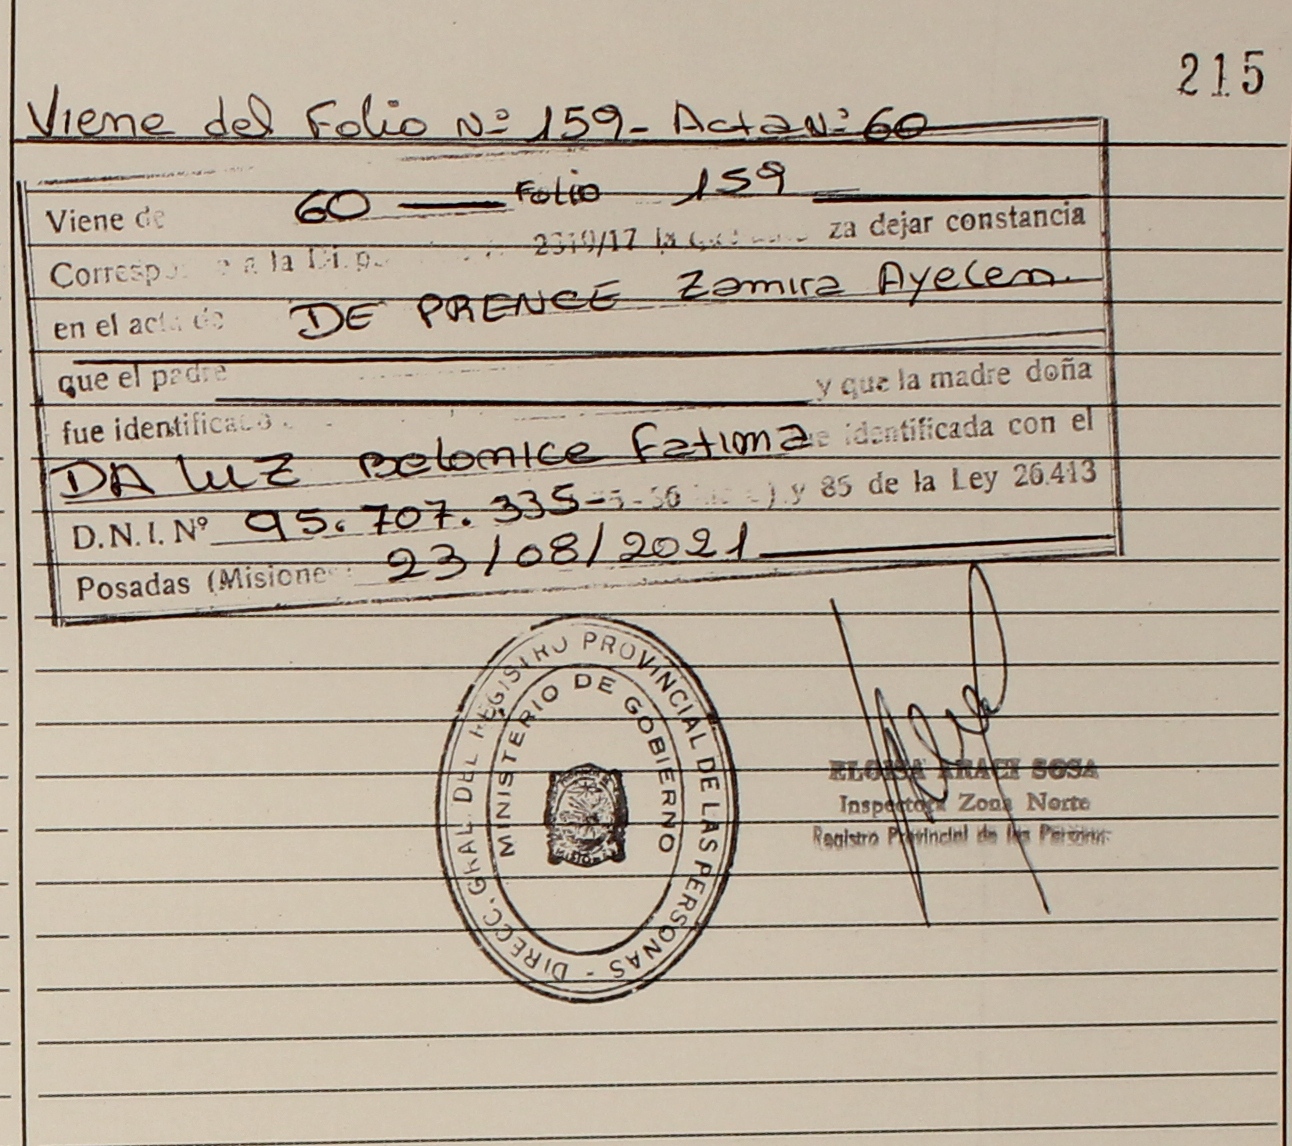 215
Viene del Folio Nº 159- Acta Nº 60
Viene de 60 — Folio 159 —
a la 2319/17 za dejar constancia
en el acta de DE PRENCE Zamira Ayelen
que el padre
y que la madre doña
fue identificado
DA LUZ Belomice Fatima identificada con el
D.N.I. Nº 95.707.335- y 85 de la Ley 26.413
Posadas (Misiones 23/08/2021
DIRECC. GRAL. DEL REGISTRO PROVINCIAL DE LAS PERSONAS -
MINISTERIO DE GOBIERNO
MISIONES
ELOISA ARACI SOSA
Inspectora Zona Norte
Registro Provincial de las Personas